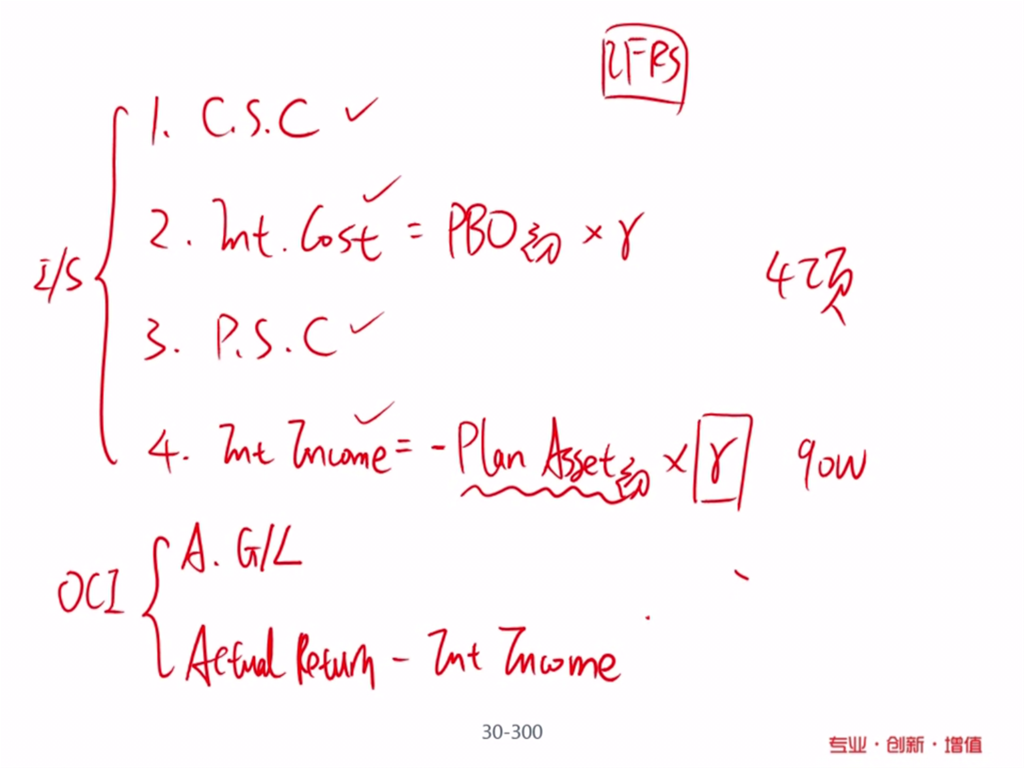 IFRS
1. C.S.C ✓
2. Int. Cost = PBO初 × r
I/S
4项
3. P.S.C ✓
4. Int Income = - Plan Asset初 × r 90W
A. G/L
OCI
Actual Return - Int Income
30-300
专业·创新·增值